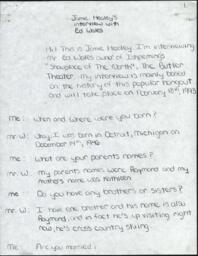 1
Jamie Healey's
interview with
Ed Wales
Hi! This is Jamie Healey. I'm interviewing
Mr. Ed Wales owner of Ishpeming's
"Showplace of The North", The Butler
Theater. My interview is mainly based
on the history of this popular hangout
and will take place on February 18th, 1993
Me: When and Where were you born?
Mr. W: Okay, I was born in Detroit, Michigan on
December 14th, 1946
Me: What are your parents names?
Mr. W: My parents names were Raymond and my
mothers name was Kathleen
Me: Do you have any brothers or sisters?
Mr. W: I have one brother and his name is also
Raymond, and in fact he's up visiting right
now, he's cross country skiing.
Me: Are you married?